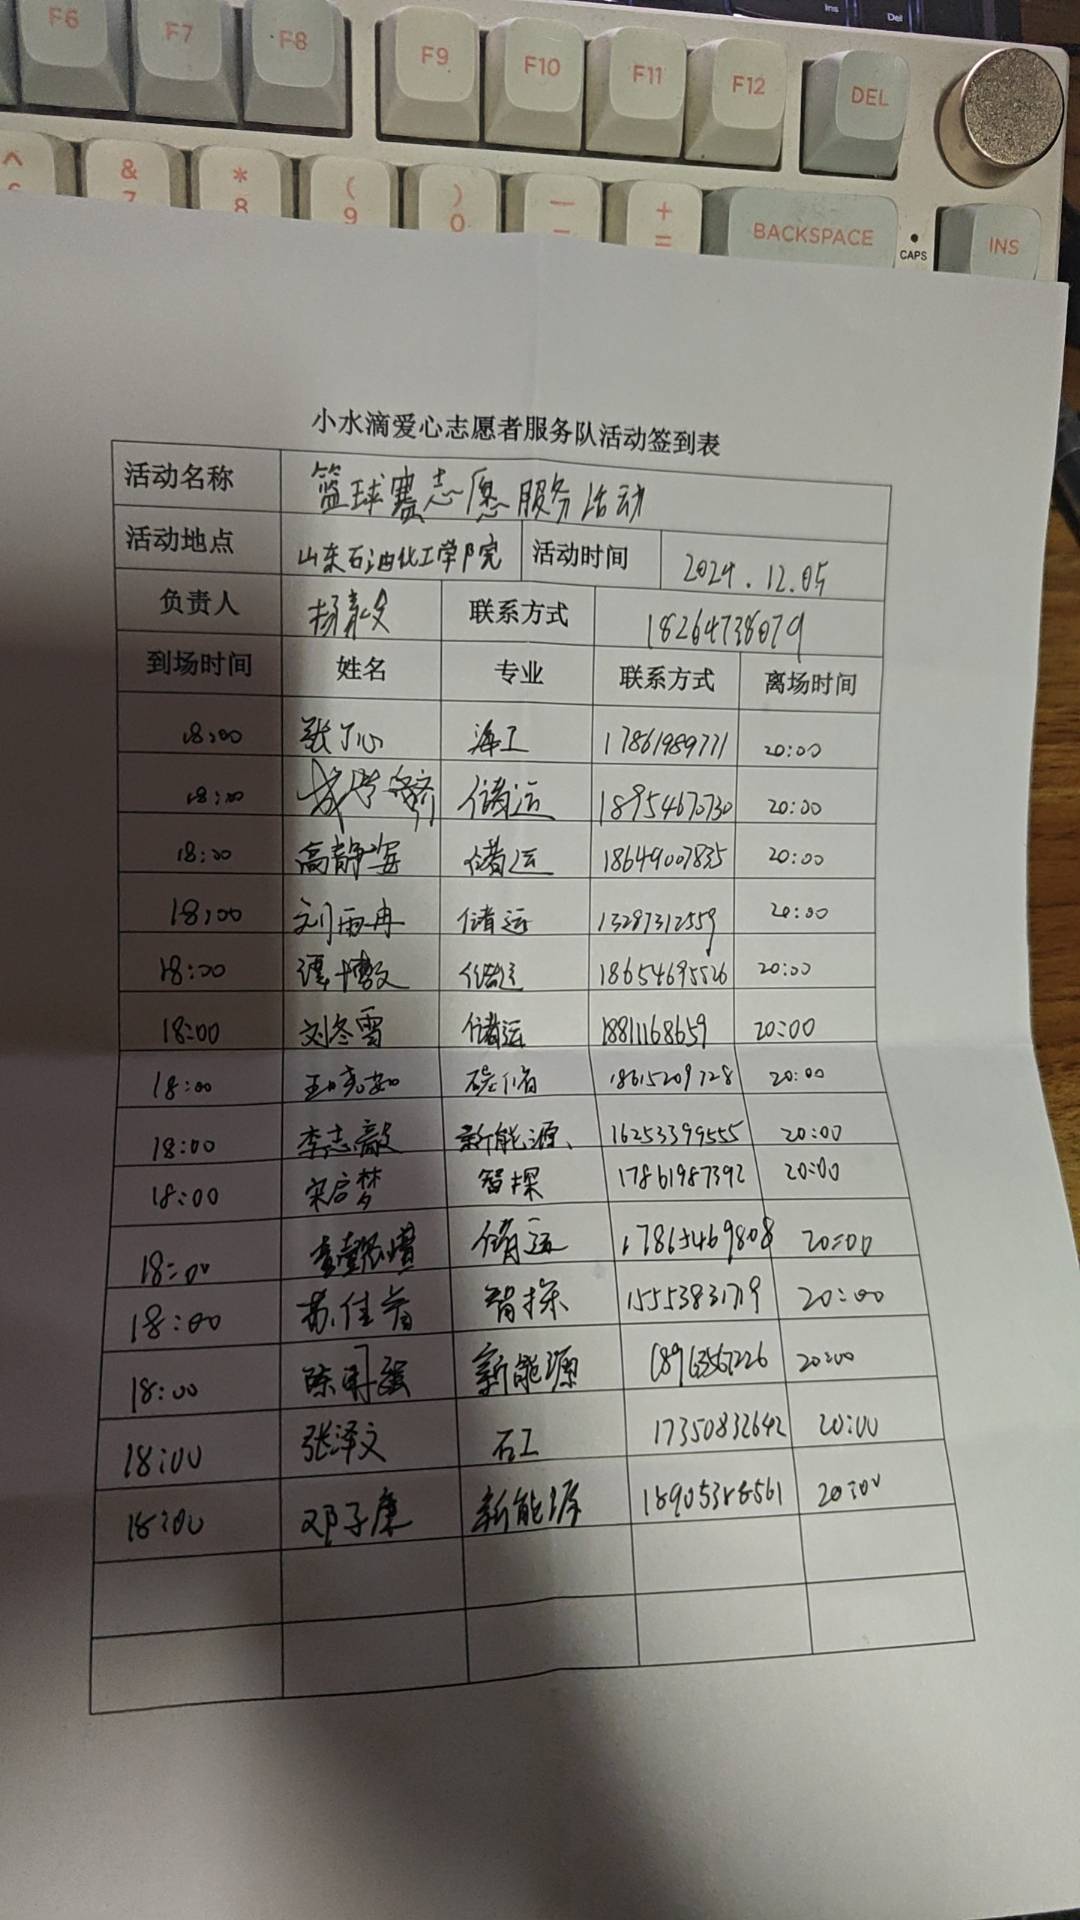 Ins Del
F6 F7 F8 F9 F10 F11 F12 DEL
^ & * ( ) — +
6 7 8 9 0 - = BACKSPACE CAPS INS
小水滴爱心志愿者服务队活动签到表
活动名称 篮球赛志愿服务活动
活动地点 山东石油化工学院 活动时间 2024.12.05
负责人 联系方式 18264738079
到场时间 姓名 专业 联系方式 离场时间
18:00 张丁心 海工 17861989771 20:00
18:00 储运 18954670730 20:00
18:00 高静 储运 18649007835 20:00
18:00 刘雨冉 储运 13287312559 20:00
18:00 储运 18654695526 20:00
18:00 刘冬雪 储运 18811168659 20:00
18:00 碳储 18615209728 20:00
18:00 李志毅 新能源 16253399555 20:00
18:00 宋启梦 智探 17861987392 20:00
18:00 储运 17865469808 20:00
18:00 苏佳 智探 20:00
18:00 陈 新能源 20:00
18:00 张泽文 石工 17350832642 20:00
18:00 邓子康 新能源 20:00